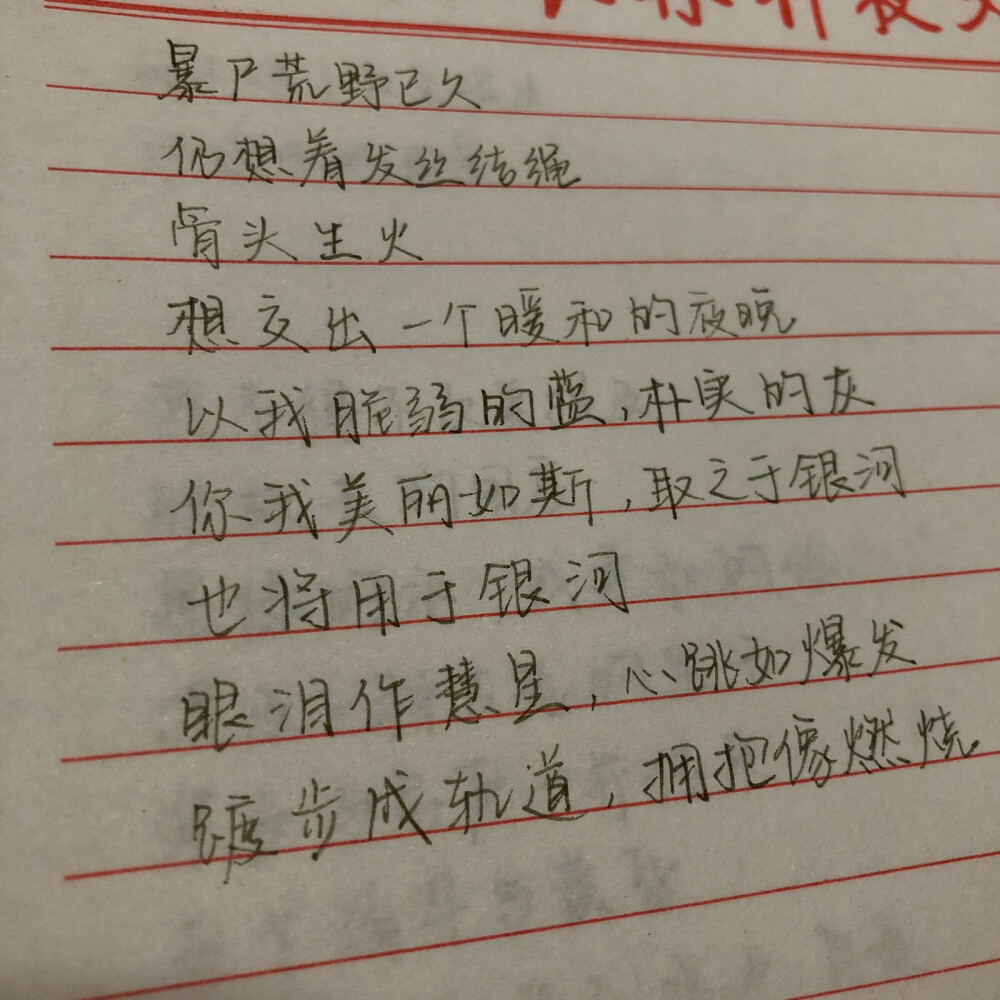 暴尸荒野已久
仍想着发丝结绳
骨头生火
想交出一个暖和的夜晚
以我脆弱的蓝,朴实的灰
你我美丽如斯,取之于银河
也将用于银河
眼泪作慧星,心跳如爆发
踱步成轨道,拥抱像燃烧